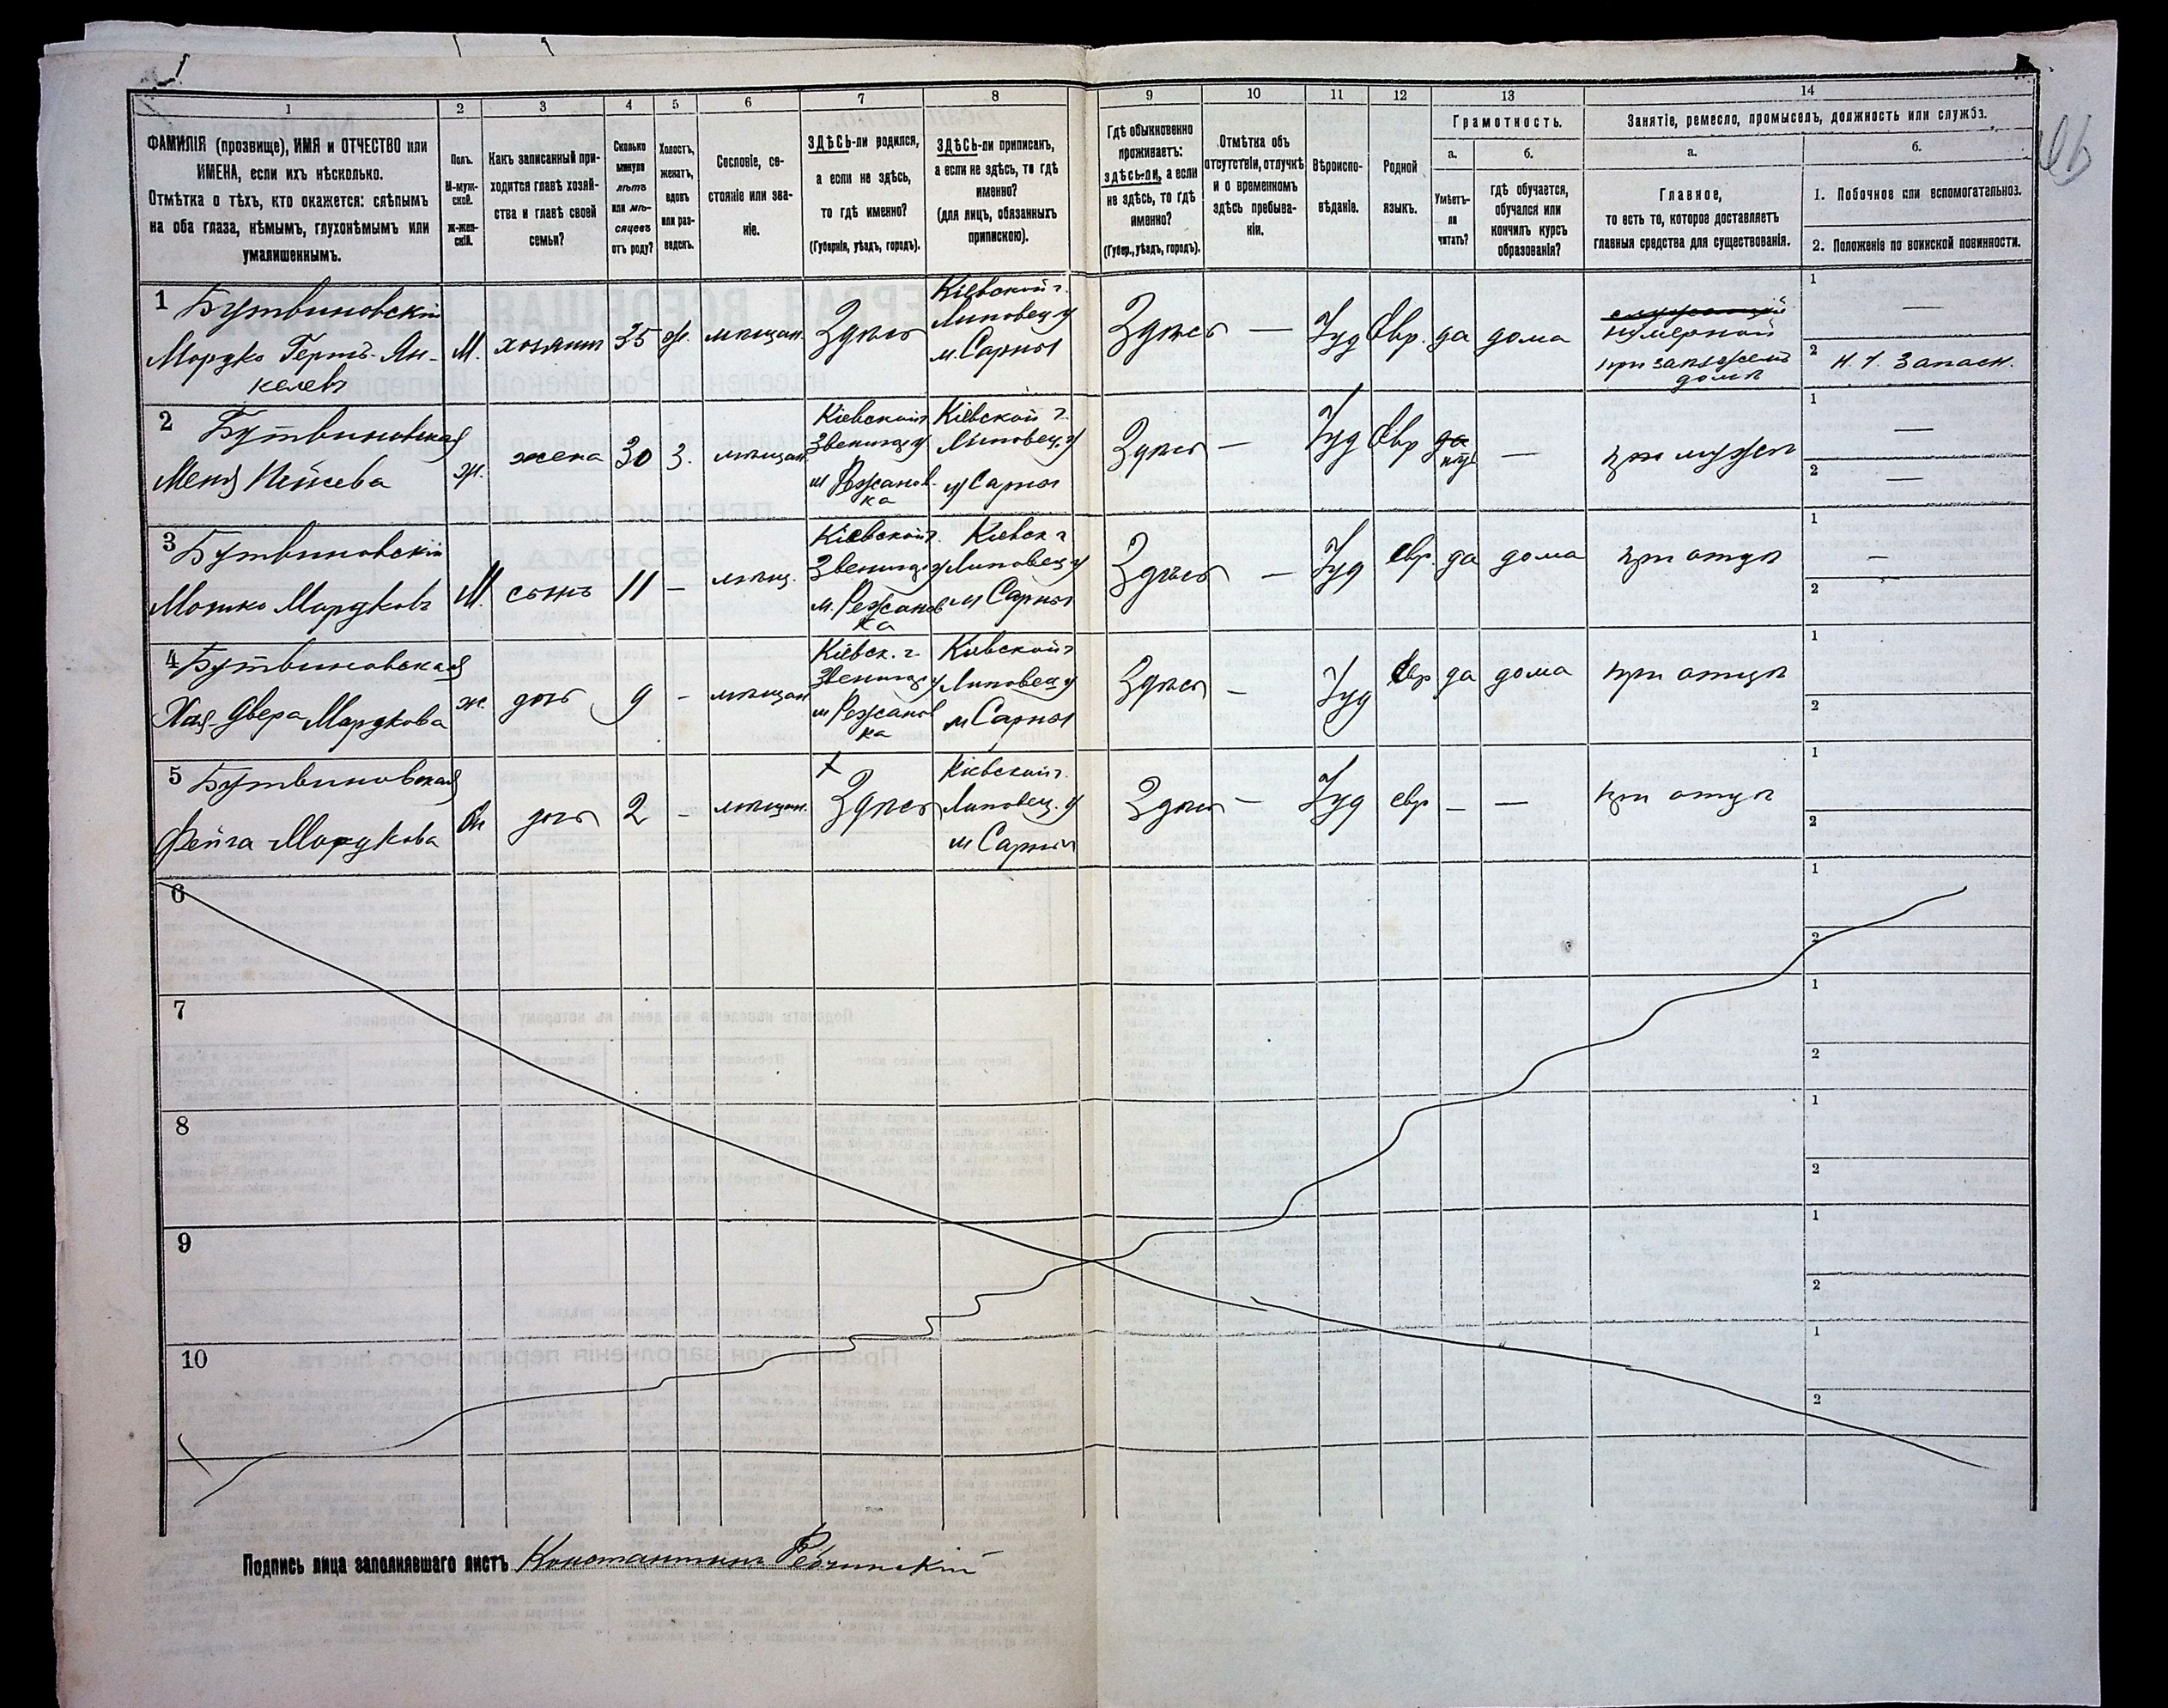 1 2 3 4 5 6 7 8 9 10 11 12 13 14
ФАМИЛІЯ (прозвище), ИМЯ и ОТЧЕСТВО или
ИМЕНА, если ихъ нѣсколько.
Отмѣтка о тѣхъ, кто окажется: слѣпымъ
на оба глаза, нѣмымъ, глухонѣмымъ или
умалишеннымъ.
Полъ.
М-муж-
ской.
Ж-жен-
скій.
Какъ записанный при-
ходится главѣ хозяй-
ства и главѣ своей
семьи?
Сколько
минуло
лѣтъ
или мѣ-
сяцевъ
отъ роду?
Холостъ,
женатъ,
вдовъ
или раз-
веденъ.
Сословіе, со-
стояніе или зва-
ніе.
ЗДѢСЬ-ли родился,
а если не здѣсь,
то гдѣ именно?
(Губернія, уѣздъ, городъ).
ЗДѢСЬ-ли приписанъ,
а если не здѣсь, то гдѣ
именно?
(для лицъ, обязанныхъ
припискою).
Гдѣ обыкновенно
проживаетъ:
здѣсь-ли, а если
не здѣсь, то гдѣ
именно?
(Губер., уѣздъ, городъ).
Отмѣтка объ
отсутствіи, отлучкѣ
и о временномъ
здѣсь пребыва-
ніи.
Вѣроиспо-
вѣданіе.
Родной
языкъ.
Грамотность.
а.
Умѣетъ-
ли
читать?
б.
гдѣ обучается,
обучался или
кончилъ курсъ
образованія?
Занятіе, ремесло, промыселъ, должность или служба.
а.
Главное,
то есть то, которое доставляетъ
главныя средства для существованія.
б.
1. Побочное или вспомогательное.
2. Положеніе по воинской повинности.
1 Бутвиновскій
Мордко Герш- Ян-
келевъ
М.
хозяинъ
35
ж.
мѣщан.
Здѣсь
Кіевской г.
Липовец у
м. Сарны
Здѣсь
—
Іуд
Евр.
да
дома
нумерной
при заѣзжемъ
домѣ
1 —
2 Н. Ч. Запасн.
2 Бутвиновская
Меня
ж.
жена
30
З.
мѣщан.
Кіевской г
Звениг. у
м Рѣжанов-
ка
Кіевской г.
Липовец. у
м Сарны
Здѣсь
—
Іуд
Евр
да
нѣт
—
при мужѣ
1 —
2 —
3 Бутвиновскій
Мошко Мордковъ
М.
сынъ
11
—
мѣщ.
Кіевской г.
Звениг. у
м. Рѣжанов
ка
Кіевск г
Липовец у
м Сарны
Здѣсь
—
Іуд
евр.
да
дома
при отцѣ
1 —
2
4 Бутвиновская
Хая-Двера Мордкова
ж.
дочь
9
-
мѣщан
Кіевск. г.
Звениг. у
м Рѣжанов
ка
Кіевской г
Липовец у
м Сарны
Здѣсь
—
Іуд
Евр
да
дома
при отцѣ
1
2
5 Бутвиновская
Фейга Мордкова
ж
дочь
2
-
мѣщан.
Здѣсь
Кіевской г.
Липовец. у
м Сарны
Здѣсь
—
Іуд
евр
—
—
при отцѣ
1
2
6
1
2
7
1
2
8
1
2
9
1
2
10
1
2
Подпись лица заполнявшаго листъ Константинъ